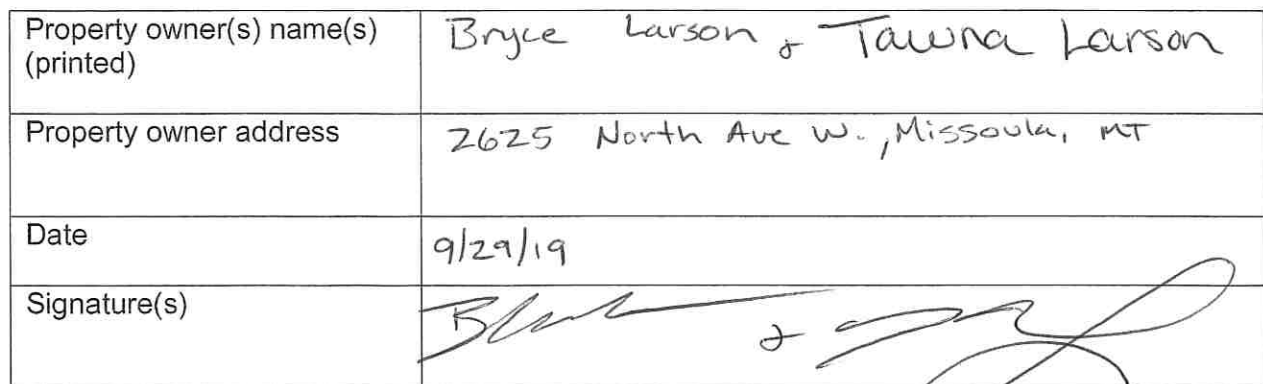 Property owner(s) name(s) Bryce Larson & Tawna Larson
(printed)
Property owner address 2625 North Ave W., Missoula, MT
Date 9/29/19
Signature(s) &